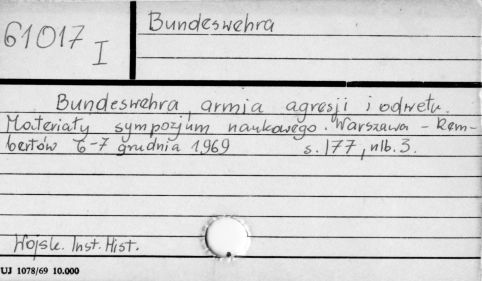 61017
I
Bundeswehra
Bundeswehra, armia agresji i odwetu.
Materiały sympozjum naukowego. Warszawa - Rem-
bertów 6-7 grudnia 1969 s. 177, nlb. 3.
Wojsk. Inst. Hist.
UJ 1078/69 10.000